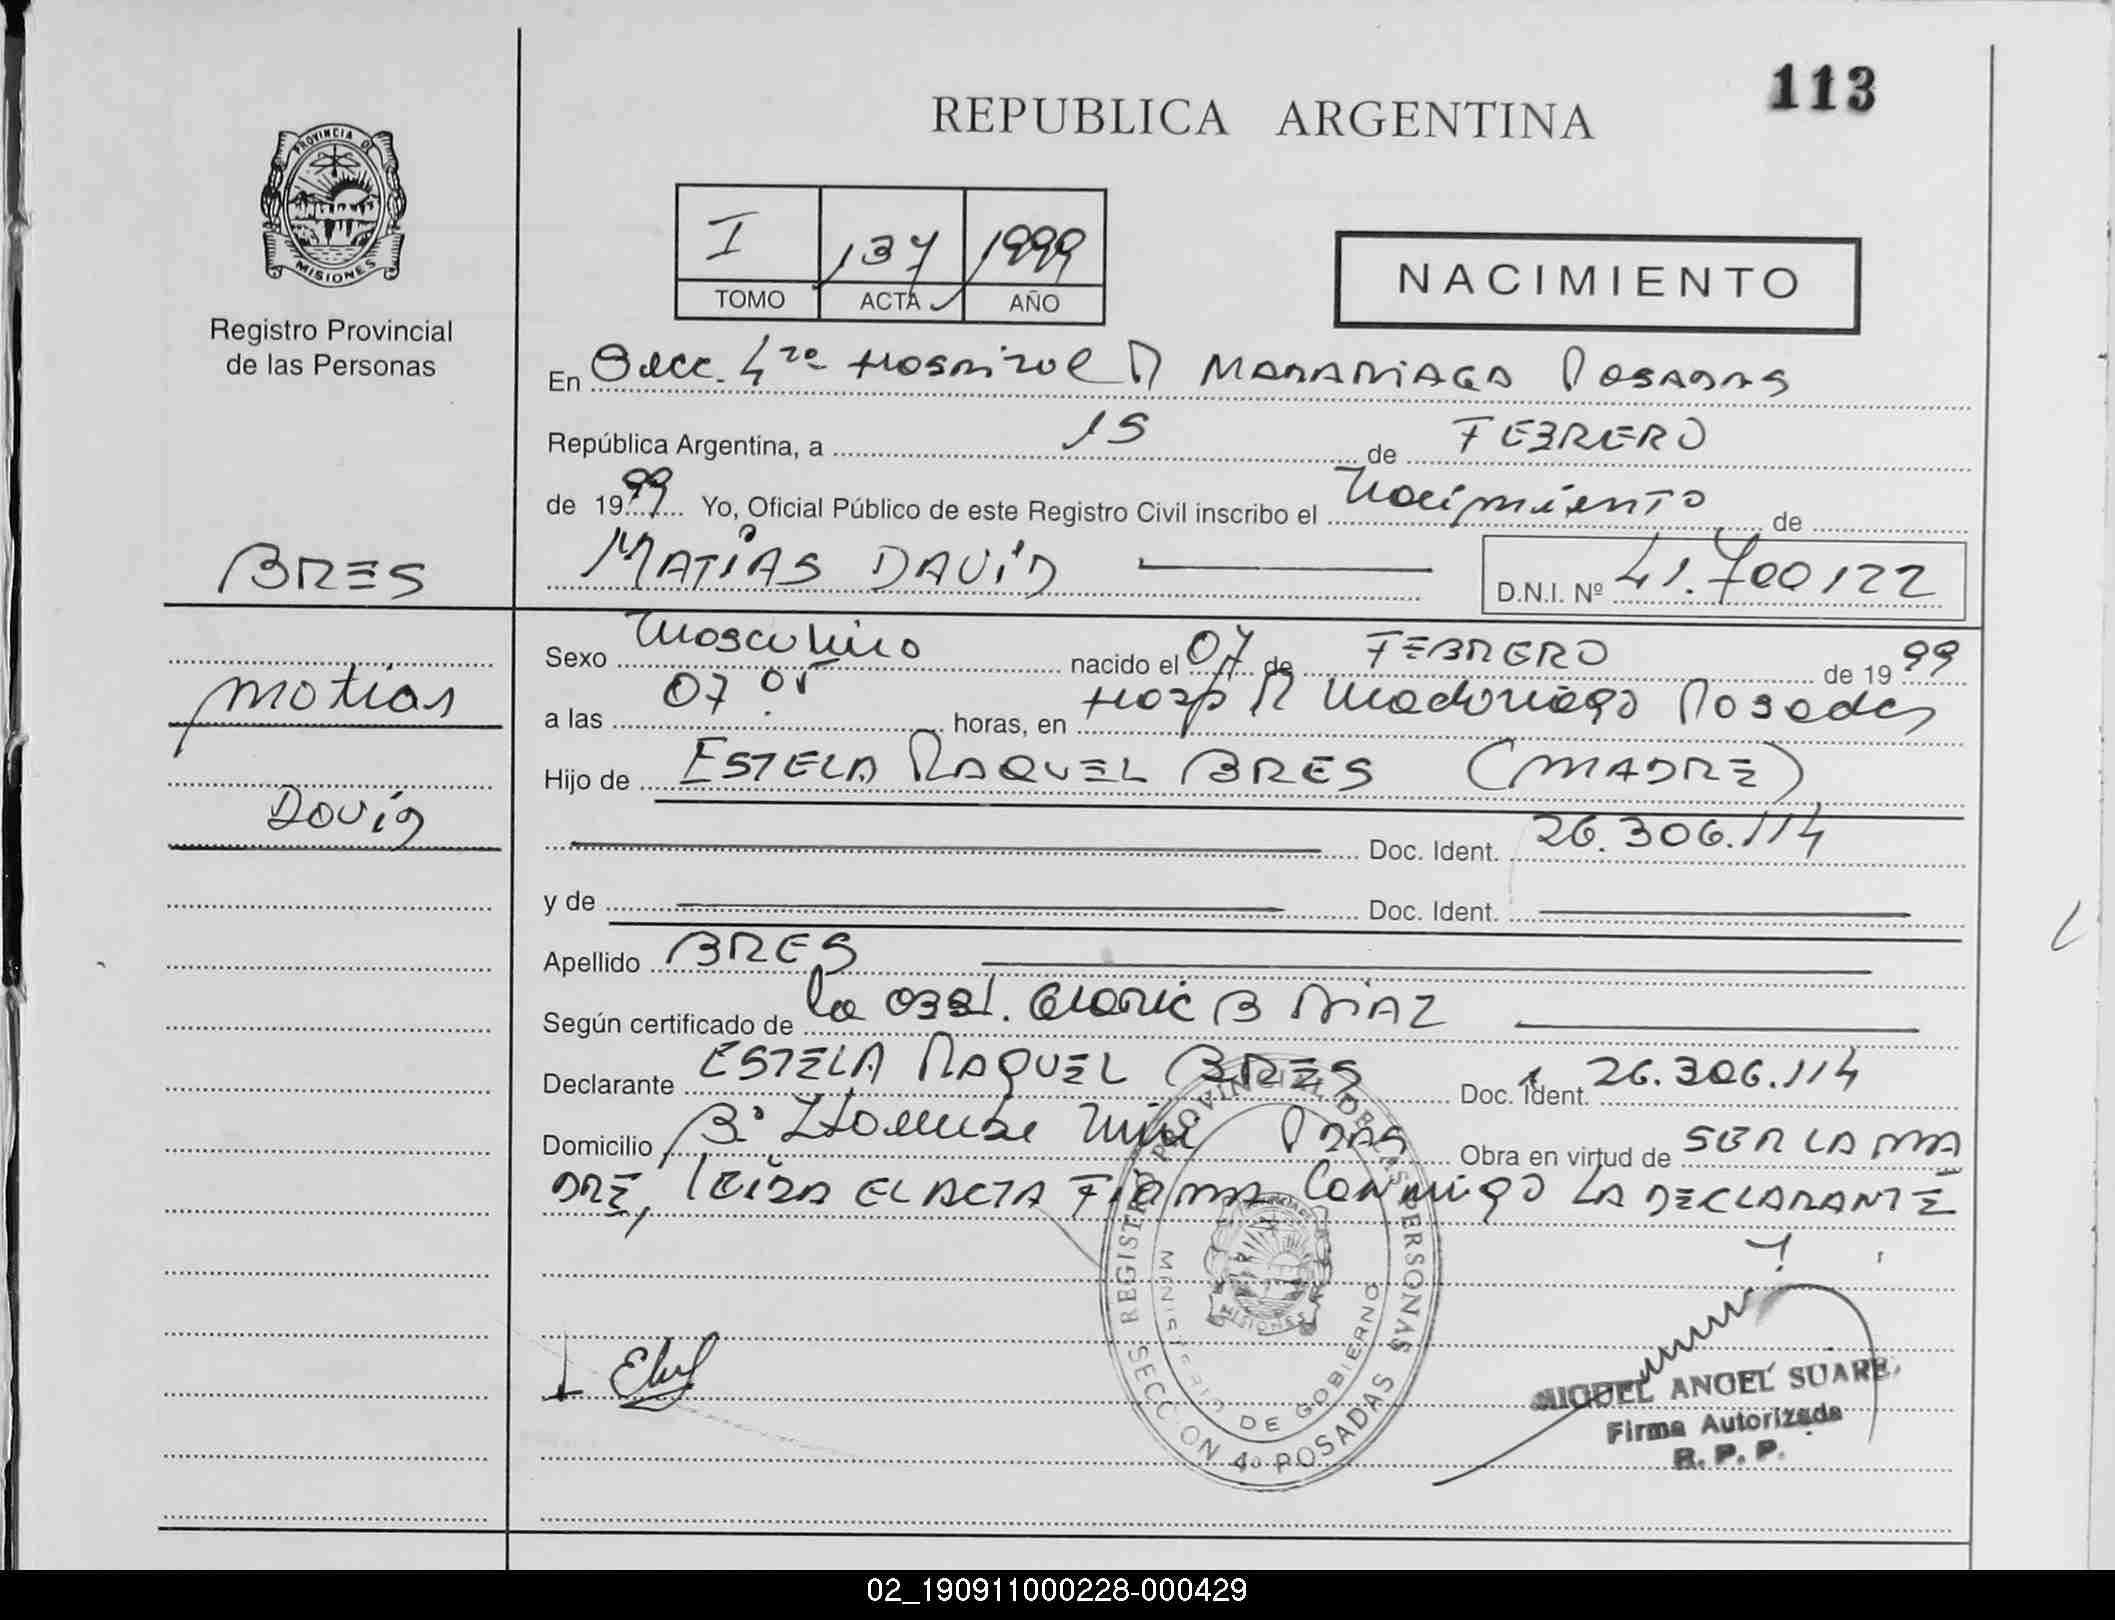 113
REPUBLICA ARGENTINA
PROVINCIA DE
MISIONES
Registro Provincial
de las Personas
I 137 1999
TOMO ACTA AÑO
NACIMIENTO
En Secc. 4ta Hospital R MADARIAGA POSADAS
República Argentina, a 15 de FEBRERO
de 1999 Yo, Oficial Público de este Registro Civil inscribo el Nacimiento de
BRES
MATÍAS DAVID
D.N.I. Nº 41.700122
Sexo Masculino nacido el 07 de FEBRERO de 1999
Matías
a las 07 05 horas, en Hosp R Madariaga Posadas
Hijo de ESTELA RAQUEL BRES (MADRE)
David
Doc. Ident. 26.306.114
y de Doc. Ident.
Apellido BRES
Según certificado de la obst. B DIAZ
Declarante ESTELA RAQUEL BRES Doc. Ident. 26.306.114
Domicilio Bº Pdas Obra en virtud de SER LA MA
DRE, leída EL ACTA FIRMA Conmigo LA DECLARANTE
REGISTRO PROVINCIAL DE LAS PERSONAS
MINISTERIO DE GOBIERNO
MISIONES
SECCION 4º POSADAS
MIGUEL ANGEL SUARE
Firma Autorizada
R. P. P.
02_190911000228-000429